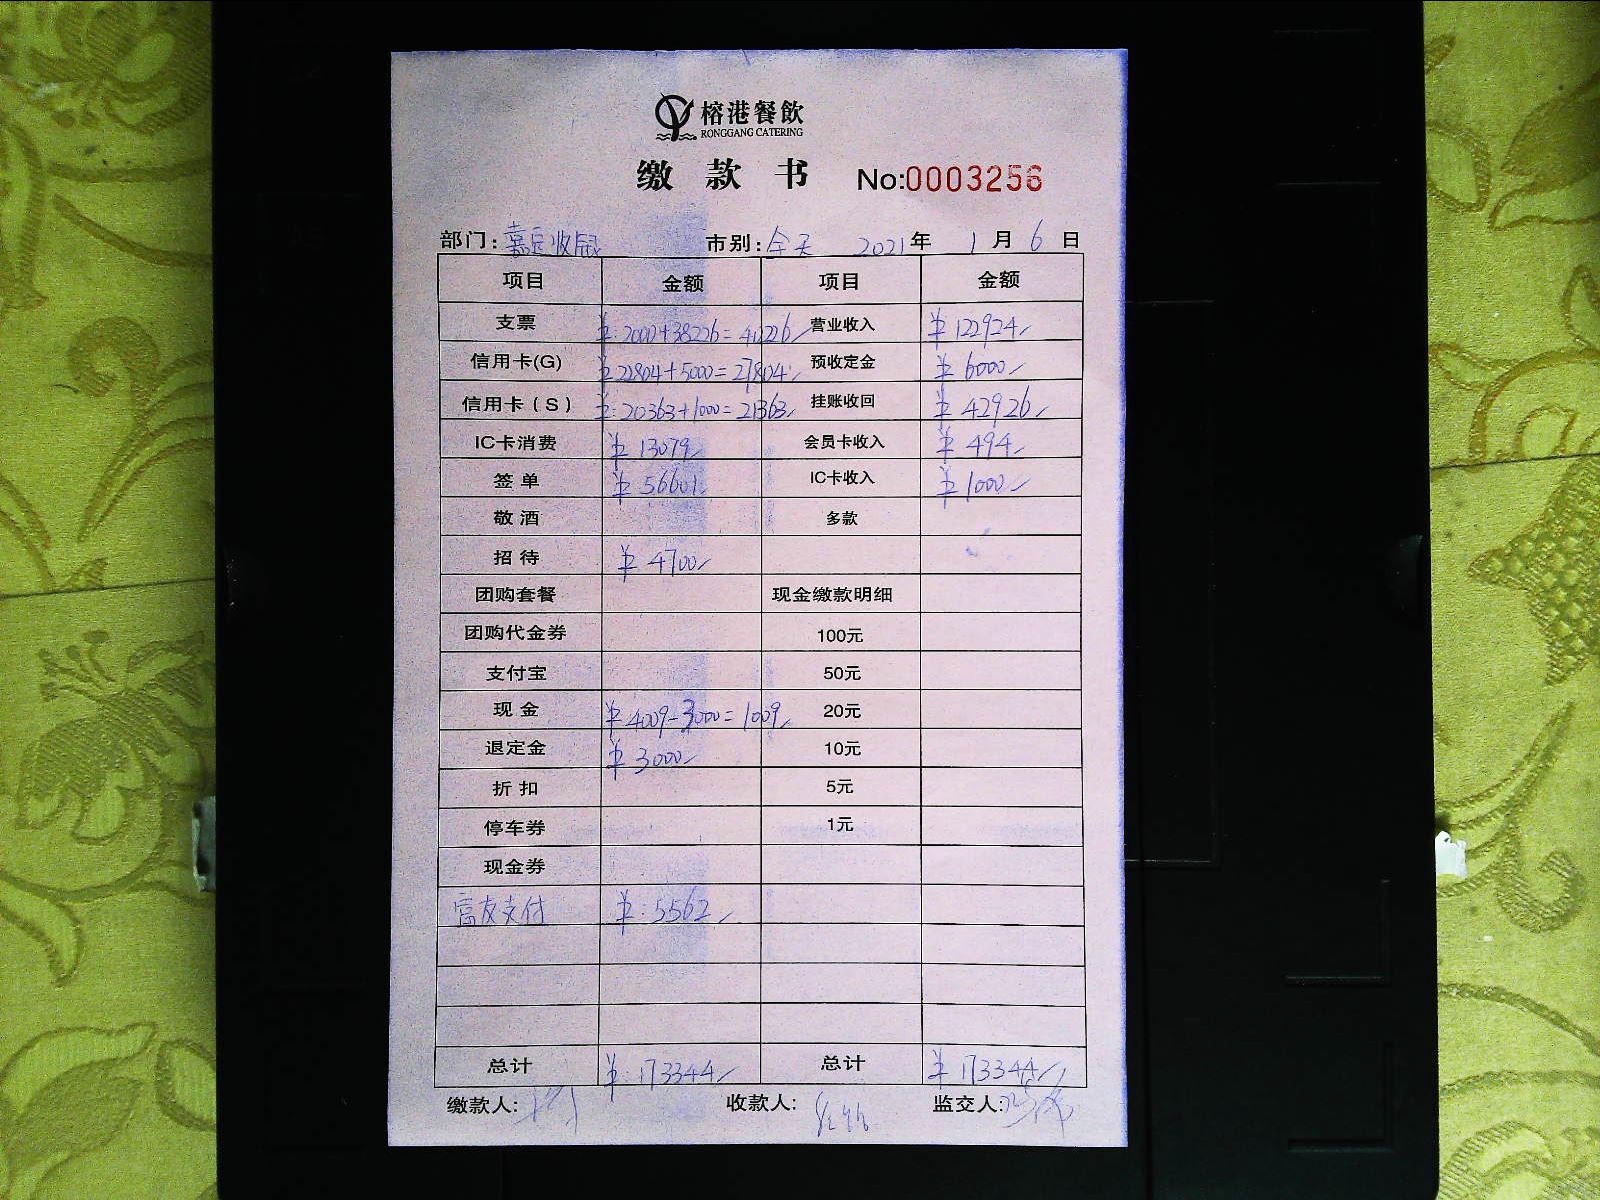 榕港餐飲
RONGGANG CATERING
缴款书 No:0003256
部门:嘉定收银 市别:全天 2021年1月6日
项目 金额 项目 金额
支票 ¥:2000+38226=40226 营业收入 ¥122924
信用卡(G) ¥22804+5000=27804 预收定金 ¥6000
信用卡(S) ¥:20363+1000=21363 挂账收回 ¥42926
IC卡消费 ¥13079 会员卡收入 ¥494
签单 ¥56601 IC卡收入 ¥1000
敬酒 多款
招待 ¥4700
团购套餐 现金缴款明细
团购代金券 100元
支付宝 50元
现金 ¥4009-3000=1009 20元
退定金 ¥3000 10元
折扣 5元
停车券 1元
现金券
富友支付 ¥:5562
总计 ¥:173344 总计 ¥173344
缴款人: 收款人: 监交人: